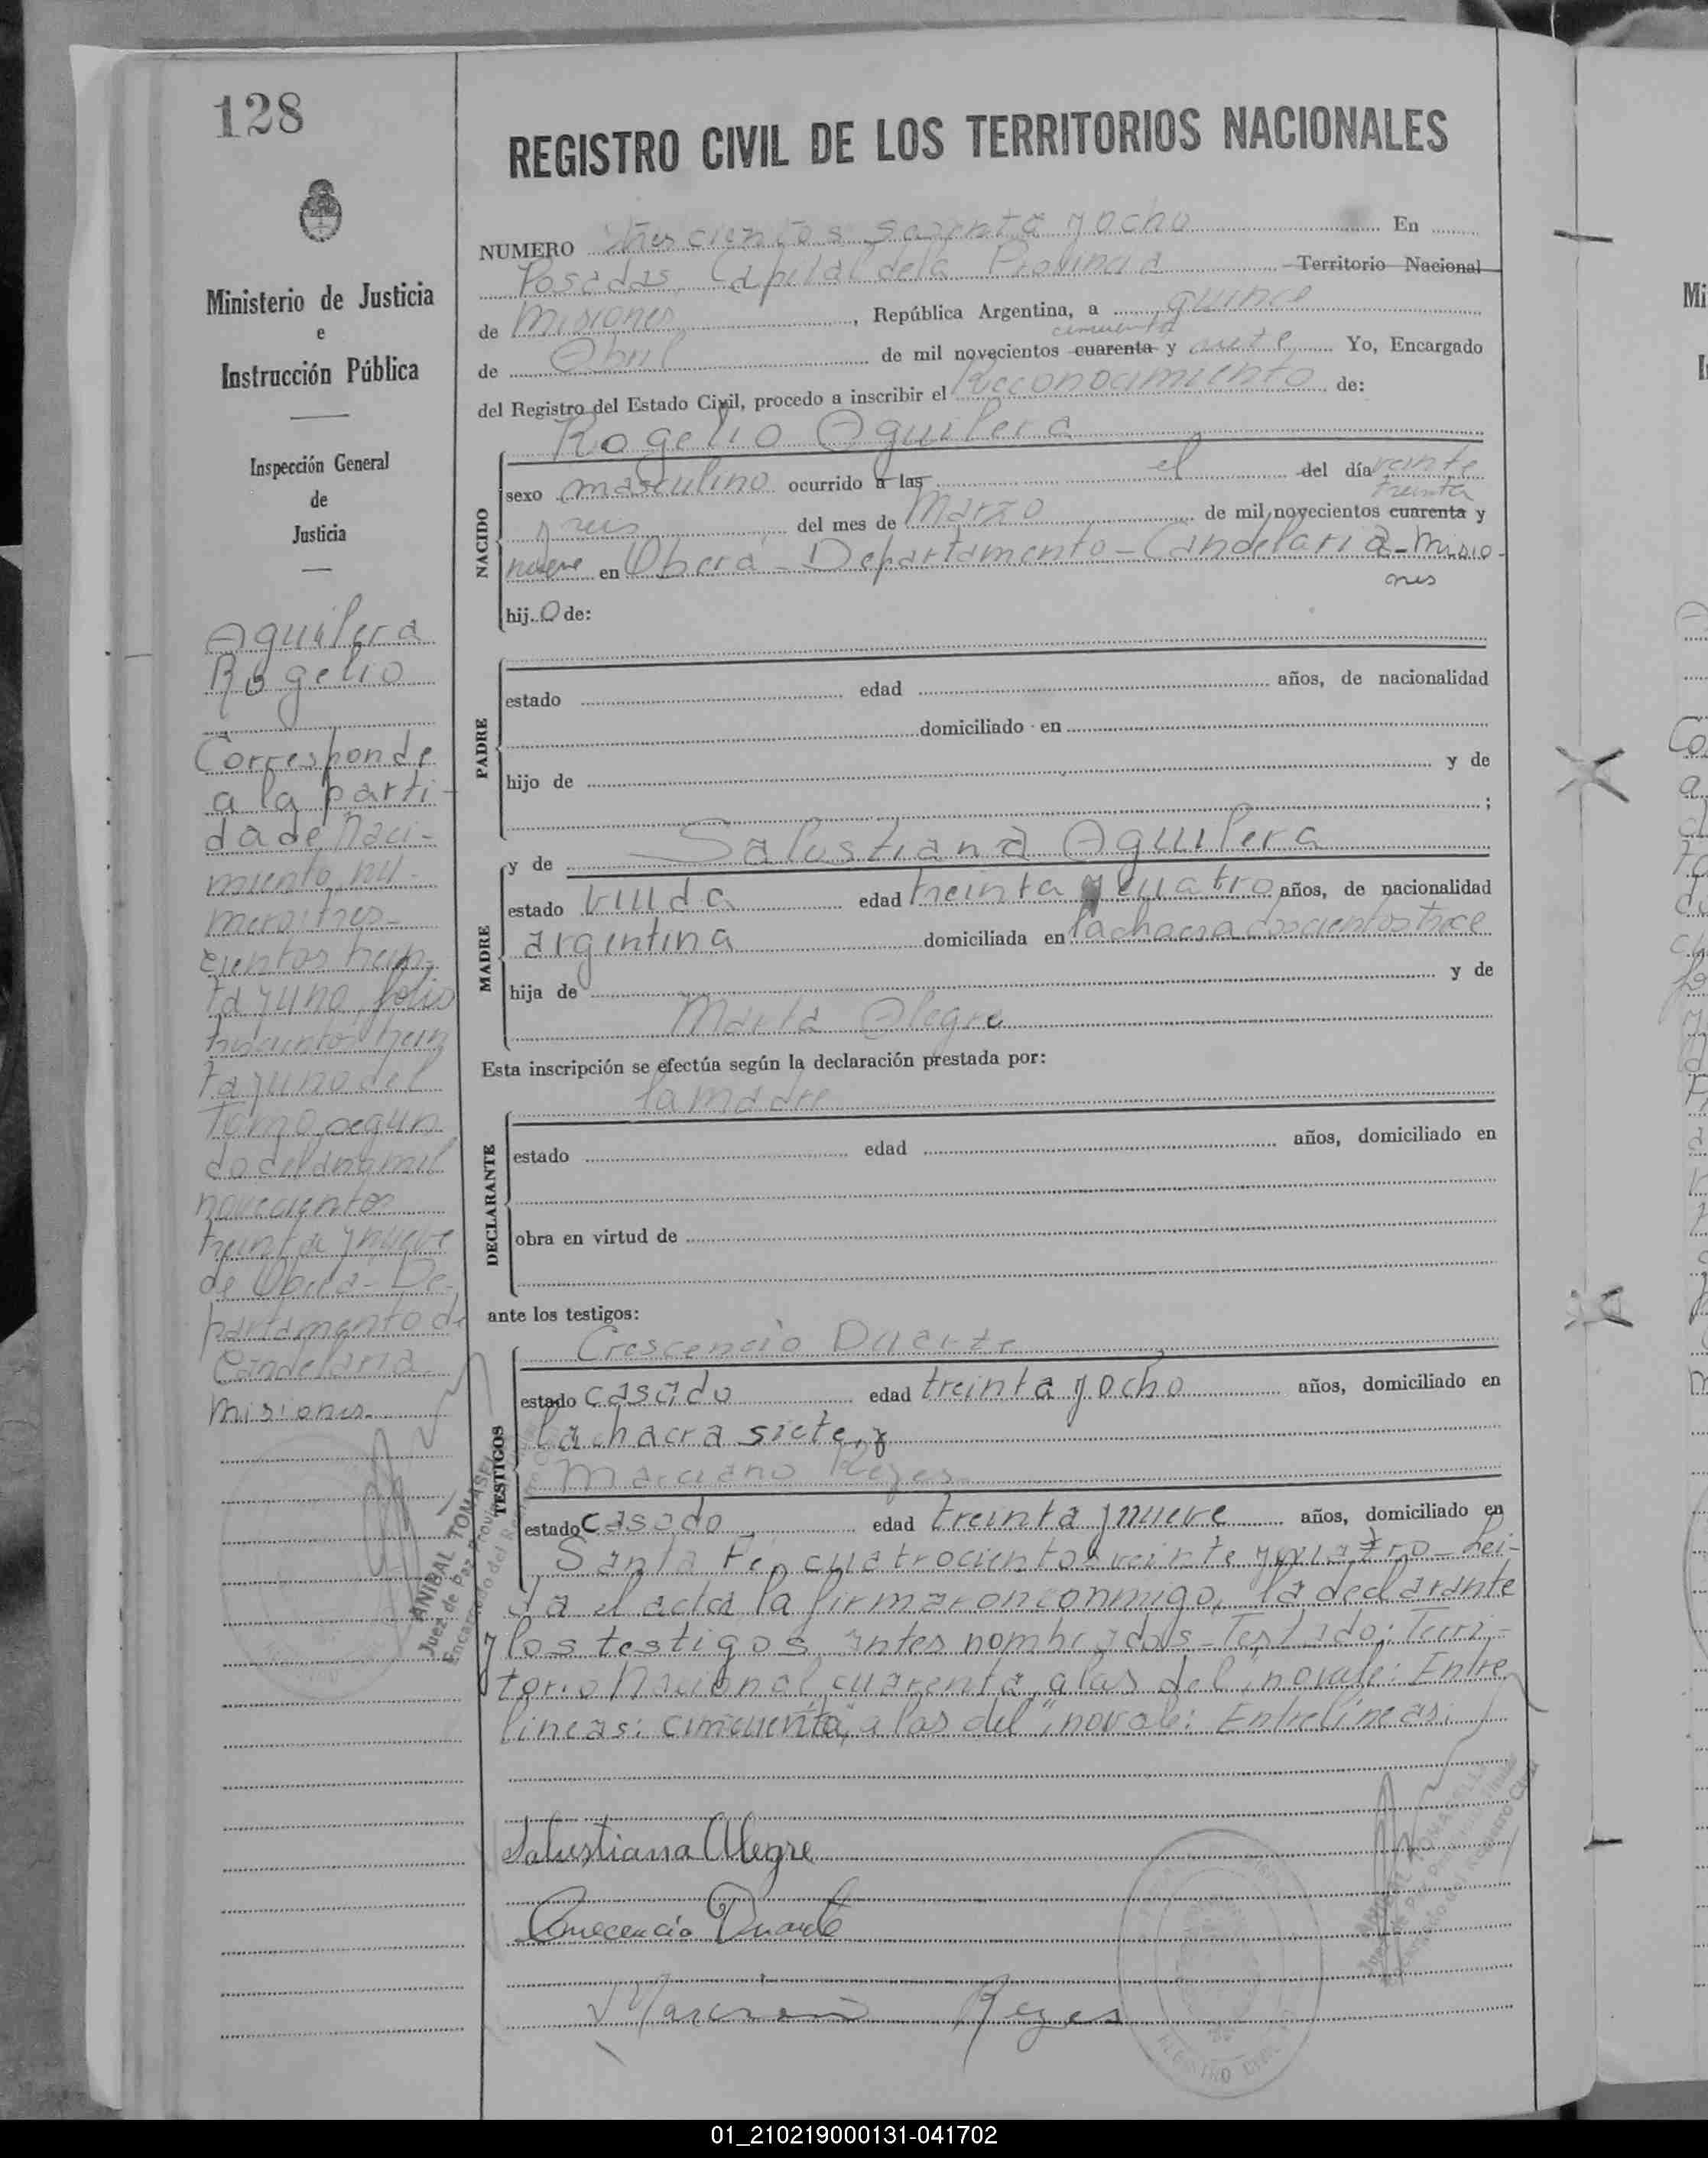 128
REGISTRO CIVIL DE LOS TERRITORIOS NACIONALES
Ministerio de Justicia
e
Instrucción Pública
Inspección General
de
Justicia
Aguilera
Rogelio
Corresponde
a la parti-
da de Naci-
miento nu-
mero tres-
cientos trein-
ta y uno, folio
trescientos trein
ta y uno del
Tomo segun
do del año mil
novecientos
treinta y nueve
de Oberá - De-
partamento de
Candelaria
Misiones
ANIBAL TOMASELLI
Juez de Paz
Encargado del
NUMERO trescientos sesenta y ocho En
Posadas, Capital de la Provincia Territorio Nacional
de Misiones, República Argentina, a quince
cincuenta
de Abril de mil novecientos cuarenta y siete Yo, Encargado
del Registro del Estado Civil, procedo a inscribir el Reconocimiento de:
Rogelio Aguilera
NACIDO
sexo masculino ocurrido a las el del día veinte
treinta
y seis del mes de Marzo de mil novecientos cuarenta y
nueve en Oberá - Departamento - Candelaria - Misio-
nes
hijo de:
PADRE
estado edad años, de nacionalidad
domiciliado en
hijo de y de
;
MADRE
y de Salustiana Aguilera
estado viuda edad treinta y cuatro años, de nacionalidad
argentina domiciliada en la chacra doscientos trece
hija de y de
María Alegre
Esta inscripción se efectúa según la declaración prestada por:
la madre
DECLARANTE
estado edad años, domiciliado en
obra en virtud de
ante los testigos:
TESTIGOS
Crescencio Duarte
estado casado edad treinta y ocho años, domiciliado en
la chacra siete, y
Marciano Reyes
estado casado edad treinta y nueve años, domiciliado en
Santa Fé, cuatrocientos veinte y cuatro - Lei-
da el acta la firmaron conmigo, la declarante
y los testigos antes nombrados - Testado: Terri-
torio Nacional, cuarenta, a las del, no vale: Entre
lineas: cincuenta, "a las del", no vale: Entrelineas:
Salustiana Alegre
Crecencio Duarte
Marciano Reyes
REGISTRO CIVIL
01_210219000131-041702